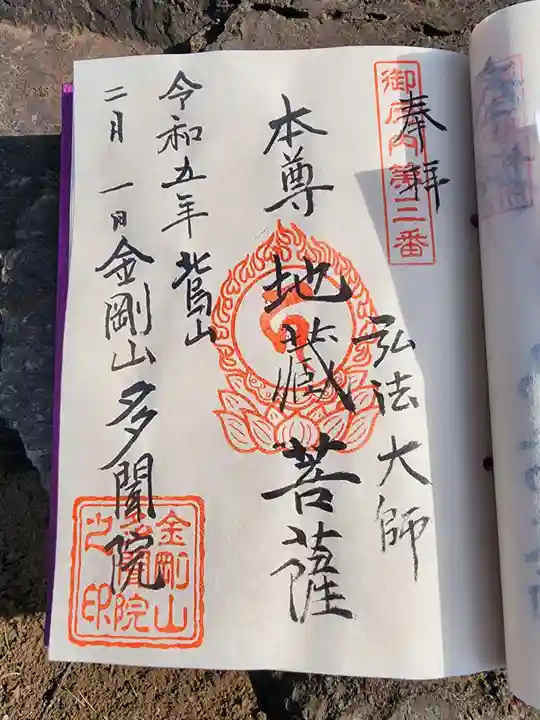 御府内第三番
奉拝
弘法大師
本尊 地蔵菩薩
令和五年
二月一日
金剛山多聞院
金剛山
多聞院
之印